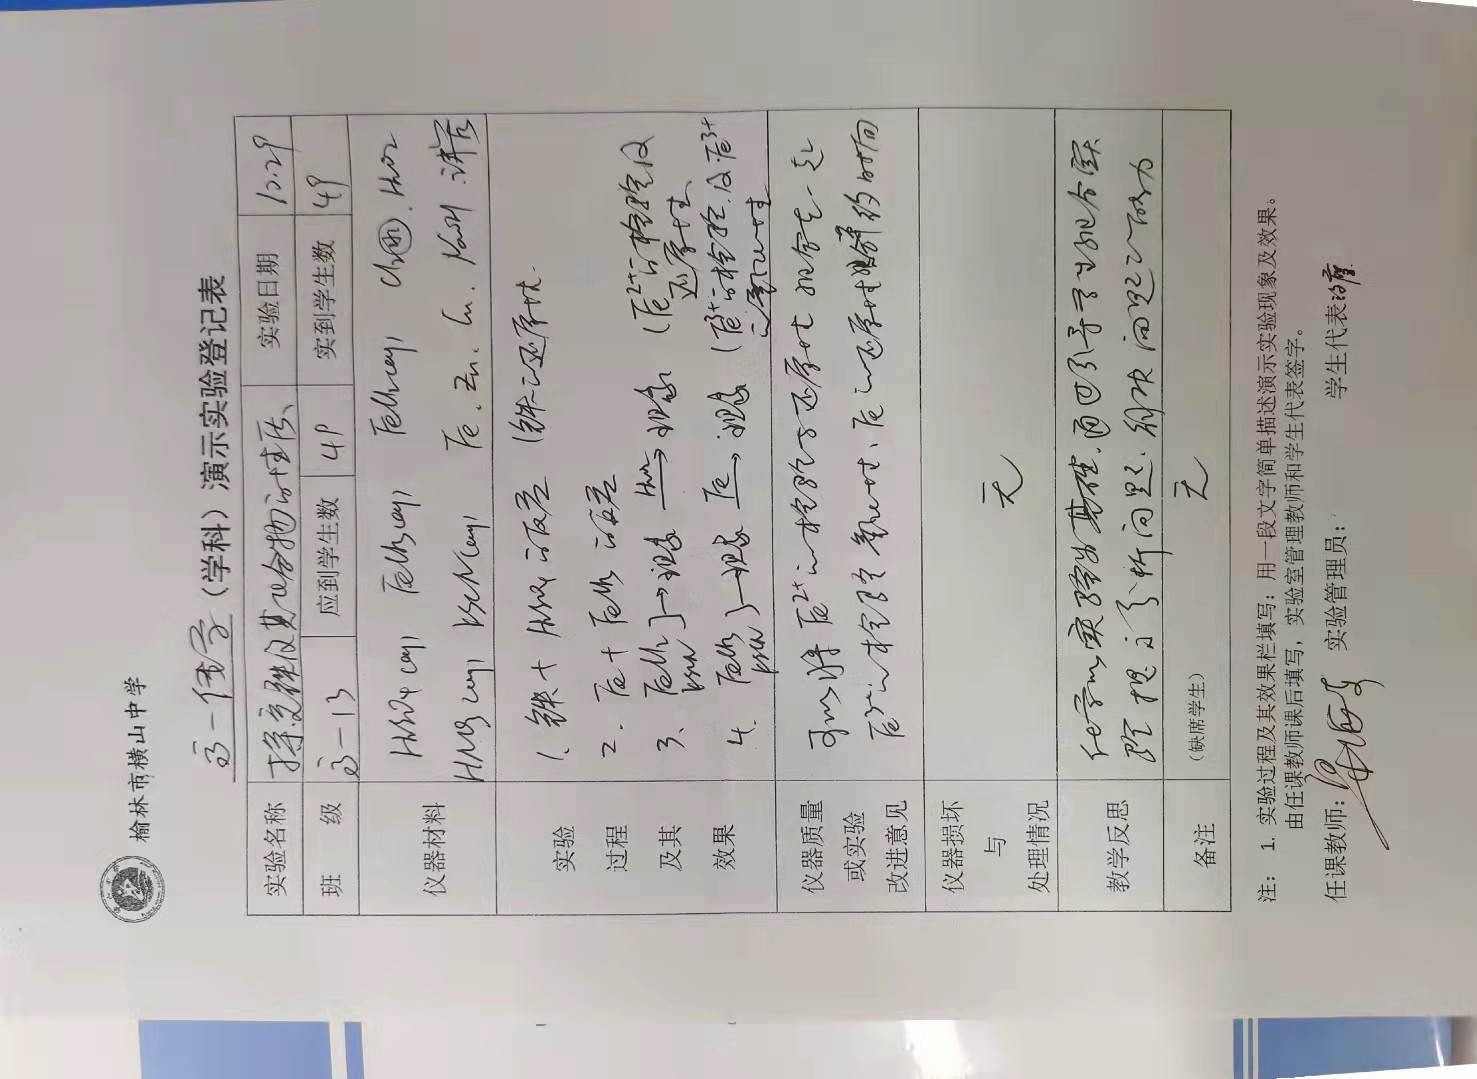 榆林市横山中学
高一化学(学科)演示实验登记表
实验名称 探究铁及其化合物的性质 实验日期 10.29
班 级 高一13 应到学生数 49 实到学生数 49
仪器材料 H₂SO₄(aq) FeCl₃(aq) FeCl₂(aq)
HNO₃(aq) KSCN(aq) Fe. Zn. Cu.
实验过程及其效果
1、铁+H₂SO₄的反应 (铁的还原性
2. Fe+FeCl₃的反应
3. FeCl₂ KSCN }→现象 →现象 (Fe²⁺的检验及还原性
4. FeCl₃ KSCN }→现象 Fe→现象 (Fe³⁺的检验及Fe³⁺的氧化性
仪器质量或实验改进意见
可以将Fe²⁺的检验与还原性
Fe³⁺的检验 氧化性、Fe的还原性
仪器损坏与处理情况 无
教学反思
化学以实验为基础,通过引导学生
分析问题、解决问题的能力
备注 (缺席学生) 无
注: 1. 实验过程及其效果栏填写:用一段文字简单描述演示实验现象及效果。
由任课教师课后填写,实验室管理教师和学生代表签字。
任课教师: 实验管理员: 学生代表: